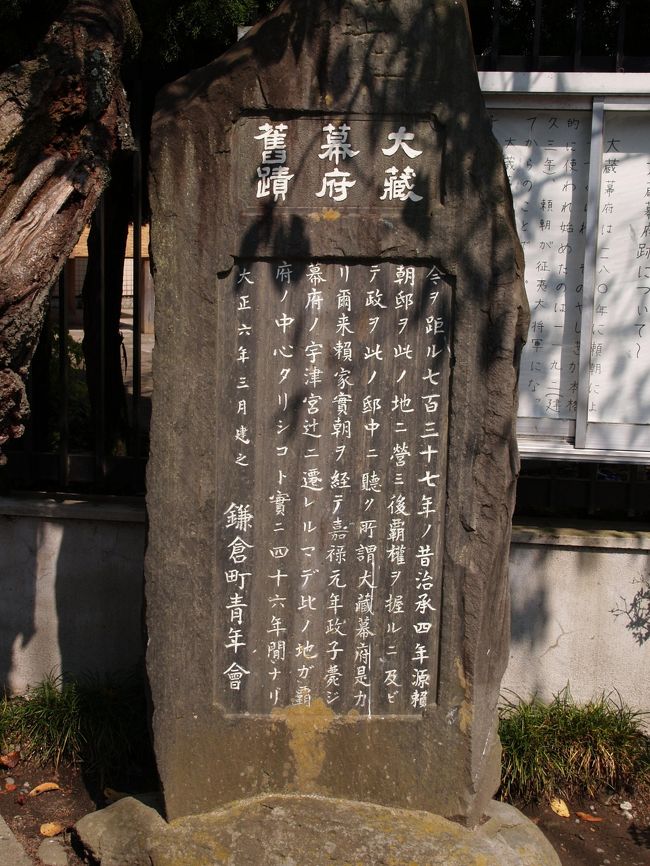 大藏
幕府
舊蹟
今ヲ距ル七百三十七年ノ昔治承四年源頼
朝邸ヲ此ノ地ニ營ミ後覇權ヲ握ルニ及ビ
テ政ヲ此ノ邸中ニ聽ク所謂大藏幕府是ナ
リ爾来頼家實朝ヲ経テ嘉禄元年政子薨ジ
幕府ノ宇津宮辻ニ遷レルマデ此ノ地ガ覇
府ノ中心タリシコト實ニ四十六年間ナリ
大正六年三月建之
鎌倉町青年會
大蔵幕府跡について〜
大蔵幕府は一一八〇年に頼朝によ
的に使われ始めたのは一一九二（建
久三年、頼朝が征夷大将軍になっ
てからのことで